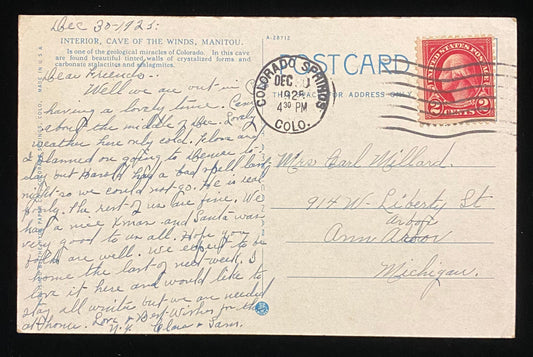 Dec 30-1925-
INTERIOR, CAVE OF THE WINDS, MANITOU.
Is one of the geological miracles of Colorado. In this cave
are found beautiful tinted walls of crystalized forms and
carbonate stalactites and stalagmites.
Dear Friends-
Well we are out in
having a lovely time. Came
about the middle of Dec. Lovely
weather here only cold. and
I planned on going to Denver to-
day but Harold had a bad spell last
night so we could not go. He is real
poorly. The rest of us are fine. We
had a nice Xmas and Santa was
very good to us all. Hope you
folks are well. We expect to be
home the last of next week. I
love it here and would like to
stay all winter but we are needed
at home. Love & Best Wishes for the
N.Y. Clara & Sam.
A-28712
POSTCARD
THIS SPACE FOR ADDRESS ONLY
COLORADO SPRINGS
DEC
1925
4 30 PM
COLO.
UNITED STATES POSTAGE
2 CENTS 2
Mrs Earl Millard.
914 W- Liberty St
arbor
Ann Arbor
Michigan.
MADE IN U.S.A.